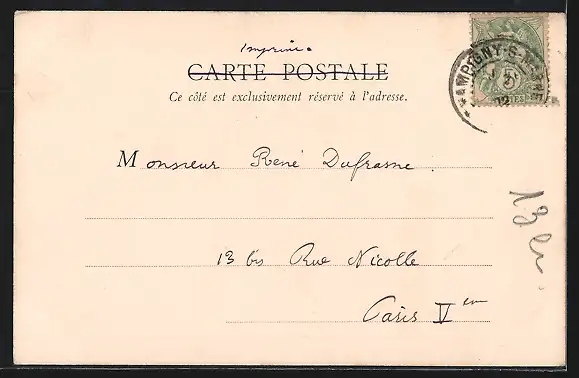 Imprimé
CARTE POSTALE
Ce côté est exclusivement réservé à l'adresse.
CHAMPIGNY-S-MARNE
02
POSTES
Monsieur René Dufrasne
13 bis Rue Nicolle
Paris V em
13 en